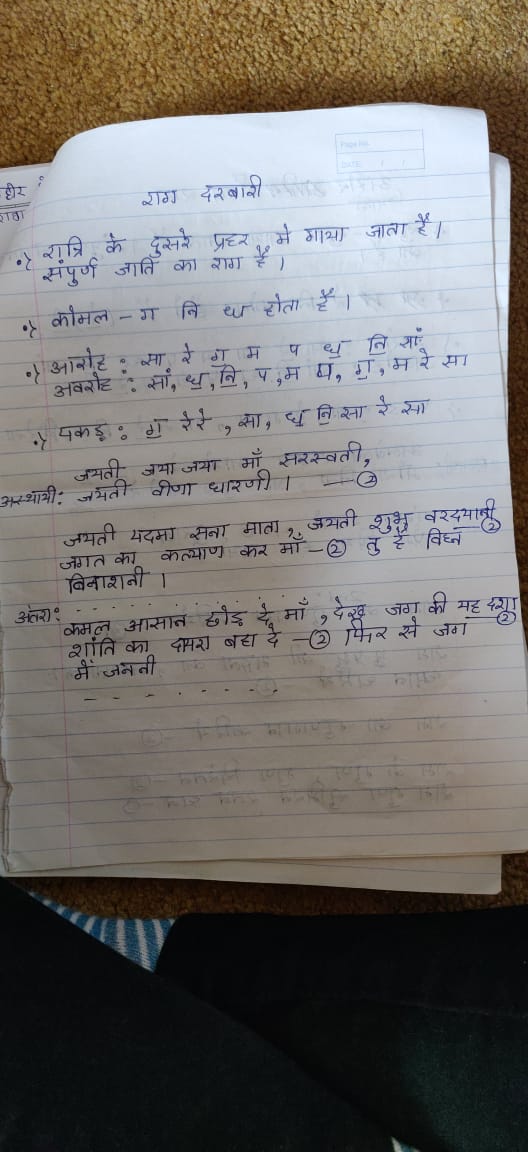 Page No.
DATE: / /
हीर :
राग दरबारी
•> रात्रि के दुसरे प्रहर मे गाया जाता है।
संपुर्ण जाति का राग है।
•> कोमल - ग नि ध होता है।
•> आरोह : सा रे ग॒ म प ध॒ नि॒ सां
अवरोह : सां, ध॒, नि॒, प, म प, ग॒, म रे सा
•> पकड़ : ग॒ रेरे, सा, ध॒ नि॒ सा रे सा
जयती जया जया माँ सरस्वती,
अस्थायी: जयती वीणा धारणी। —②
जयती पदमा सना माता, जयती शुभ्र वरदयानी —②
जगत का कल्याण कर माँ —② तु है विघ्न
विनाशनी।
अंतरा: . . . . . . . . . . . . . . .
कमल आसान छोड़ दे माँ, देख जग की यह दशा —②
शांति का दमरा बहा दे —② फिर से जग
में जननी
- - - . . . . . .